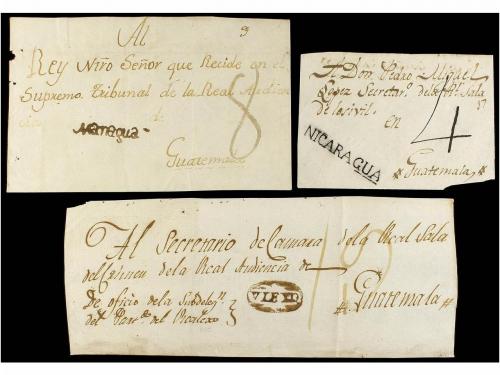 Al
Rey Nrõ Señor que Recide en el
Supremo Tribunal de la Real Audien
cia de
Guatemala
8
Nicaragua
A Don Pedro Miguel
Lopez Secretarº de la Rl. Sala
de lo sivil.
en
4
NICARAGUA
Guatemala
Al Secretario de Camara de la Real Sala
del Crimen de la Real Audiencia de
Guatemala
De oficio de la Subdelegn
del Partdo del Realexo
VIEXO